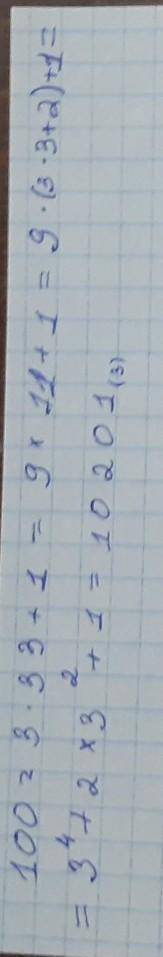 100 = 3 · 33 + 1 = 9 × 11 + 1 = 9 · (3 · 3 + 2) + 1 =
= 3⁴ + 2 × 3² + 1 = 10201₍₃₎